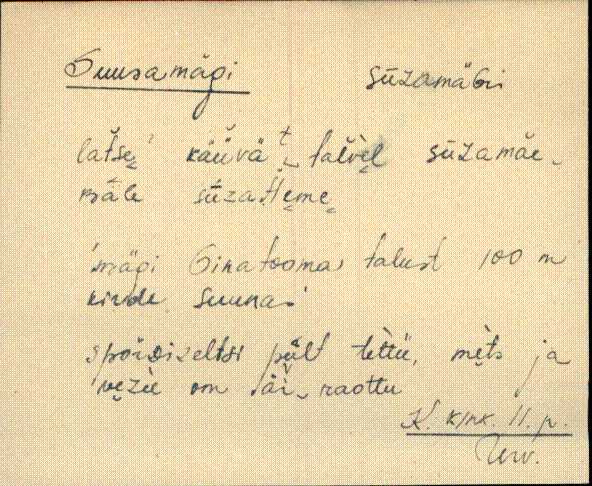 Suusamägi sūzamäGi
latse' käüvä talvel sūzamäe-
mäle sūzattleme
mägi Ginatooma talust 100 m
kirde suunas
spordizeltsi pält tettü, mets ja
vezie om läi- raottu
K. kink. 11. p.
Urv.